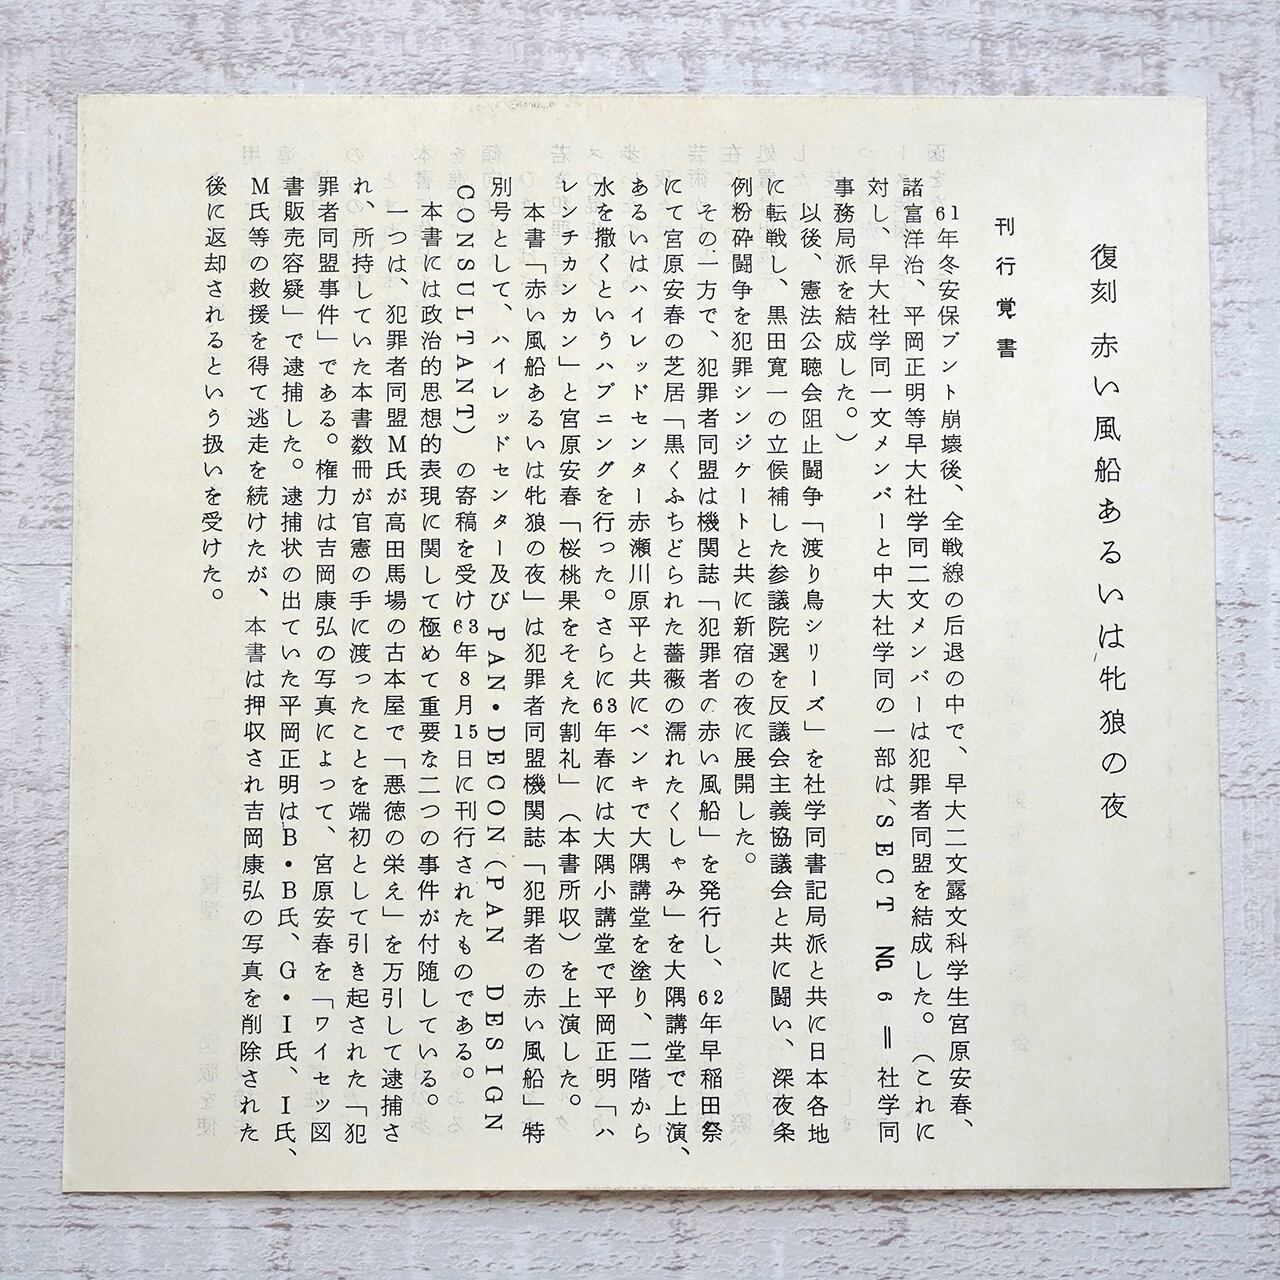 復刻 赤い風船あるいは牝狼の夜
刊行覚書
61年冬安保ブント崩壊後、全戦線の后退の中で、早大二文露文科学生宮原安春、
諸富洋治、平岡正明等早大社学同二文メンバーは犯罪者同盟を結成した。（これに
対し、早大社学同一文メンバーと中大社学同の一部は、SECT №6＝社学同
事務局派を結成した。）
以後、憲法公聴会阻止闘争「渡り鳥シリーズ」を社学同書記局派と共に日本各地
に転戦し、黒田寛一の立候補した参議院選を反議会主義協議会と共に闘い、深夜条
例粉砕闘争を犯罪シンジケートと共に新宿の夜に展開した。
その一方で、犯罪者同盟は機関誌「犯罪者の赤い風船」を発行し、62年早稲田祭
にて宮原安春の芝居「黒くふちどられた薔薇の濡れたくしゃみ」を大隅講堂で上演、
あるいはハイレッドセンター赤瀬川原平と共にペンキで大隅講堂を塗り、二階から
水を撒くというハプニングを行った。さらに63年春には大隅小講堂で平岡正明「ハ
レンチカンカン」と宮原安春「桜桃果をそえた割礼」（本書所収）を上演した。
本書「赤い風船あるいは牝狼の夜」は犯罪者同盟機関誌「犯罪者の赤い風船」特
別号として、ハイレッドセンター及びPAN・DECON(PAN DESIGN
CONSULTANT)の寄稿を受け63年8月15日に刊行されたものである。
本書には政治的思想的表現に関して極めて重要な二つの事件が付随している。
一つは、犯罪者同盟M氏が高田馬場の古本屋で「悪徳の栄え」を万引して逮捕さ
れ、所持していた本書数冊が官憲の手に渡ったことを端初として引き起された「犯
罪者同盟事件」である。権力は吉岡康弘の写真によって、宮原安春を「ワイセツ図
書販売容疑」で逮捕した。逮捕状の出ていた平岡正明はB・B氏、G・I氏、I氏、
M氏等の救援を得て逃走を続けたが、本書は押収され吉岡康弘の写真を削除された
後に返却されるという扱いを受けた。